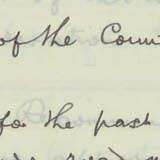 of the Coun
for the past